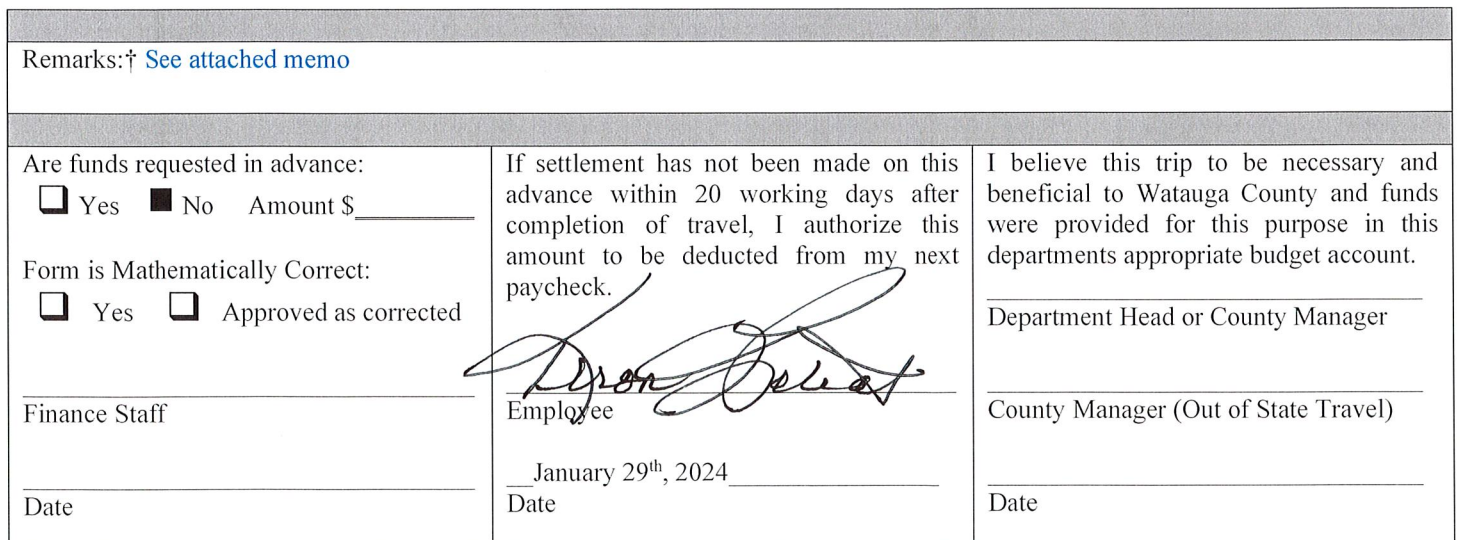 Remarks:† See attached memo
Are funds requested in advance:
☐ Yes ■ No Amount $__________
Form is Mathematically Correct:
☐ Yes ☐ Approved as corrected
Finance Staff
Date
If settlement has not been made on this
advance within 20 working days after
completion of travel, I authorize this
amount to be deducted from my next
paycheck.
Employee
__January 29th, 2024__________________
Date
I believe this trip to be necessary and
beneficial to Watauga County and funds
were provided for this purpose in this
departments appropriate budget account.
Department Head or County Manager
County Manager (Out of State Travel)
Date